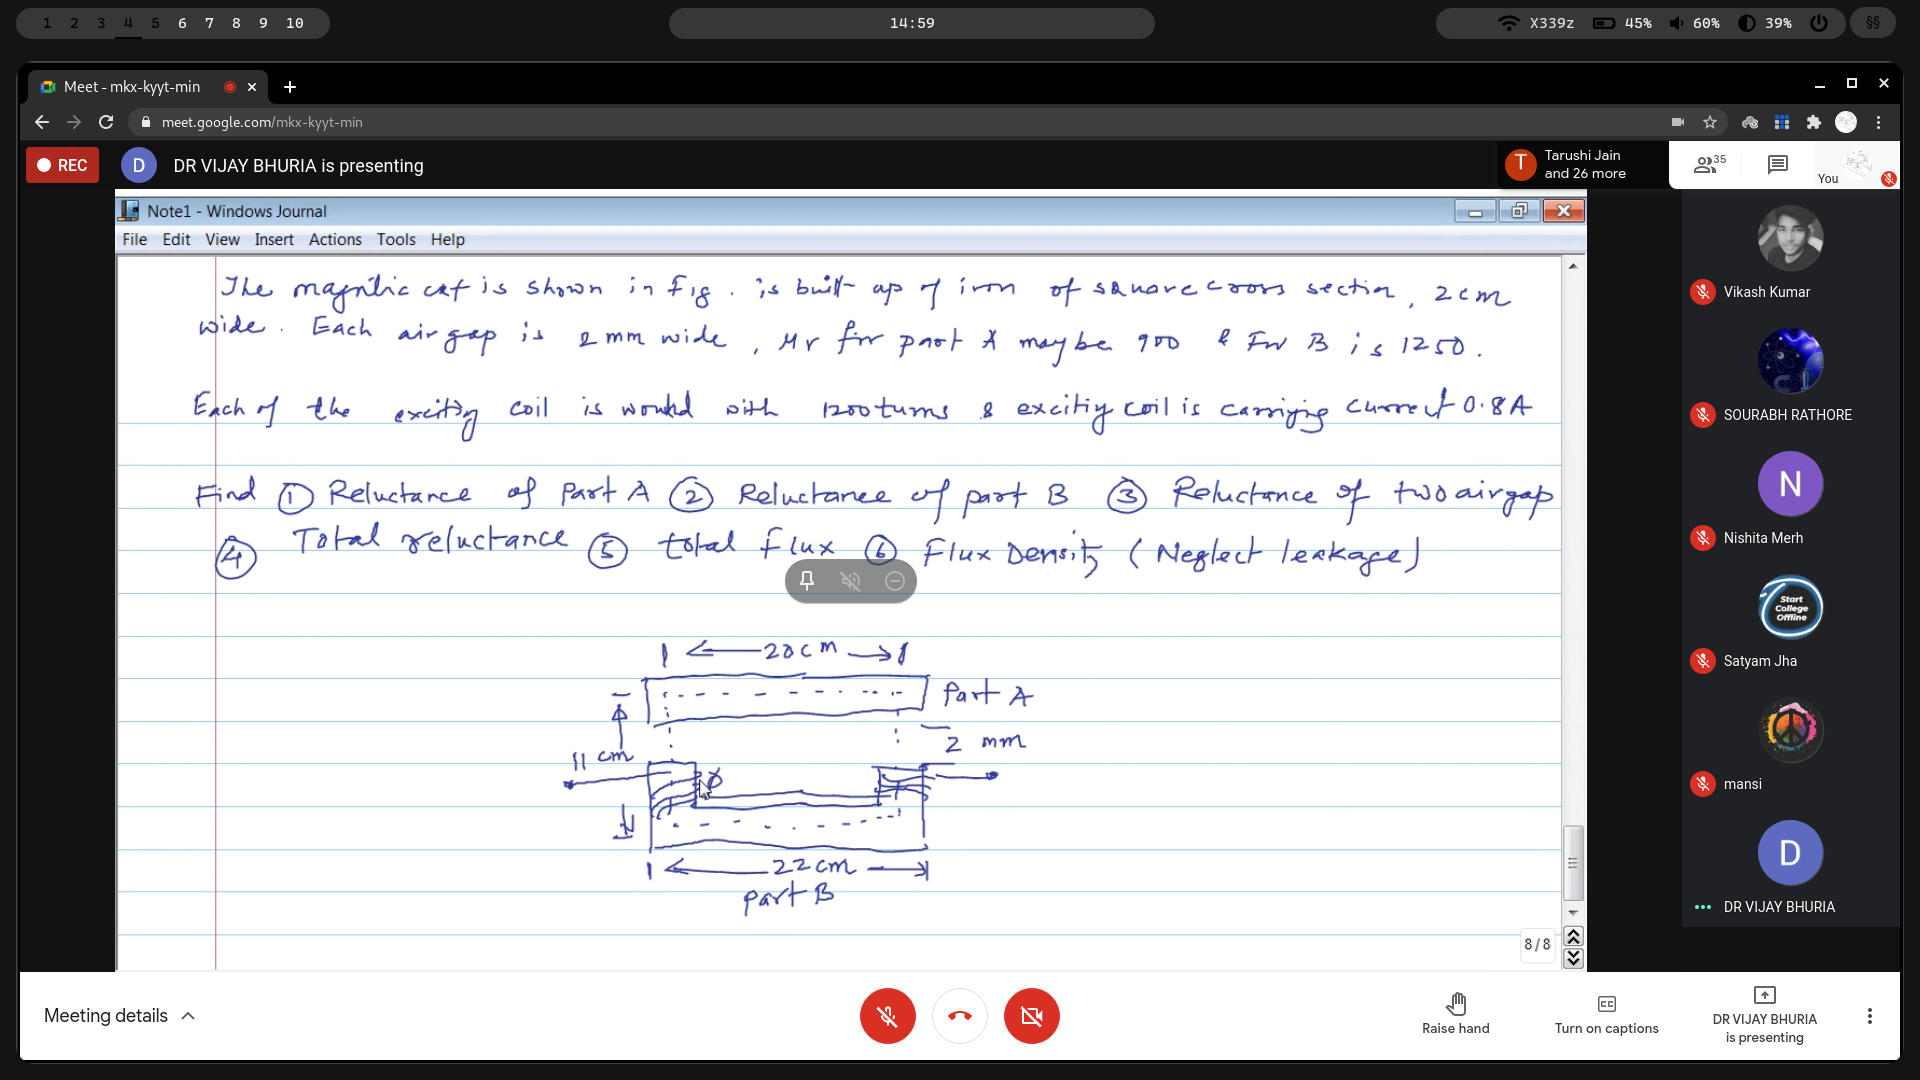 1 2 3 4 5 6 7 8 9 10
14:59
X339z 45% 60% 39% §§
Meet - mkx-kyyt-min
meet.google.com/mkx-kyyt-min
REC
D
DR VIJAY BHURIA is presenting
T
Tarushi Jain
and 26 more
35
You
Note1 - Windows Journal
File Edit View Insert Actions Tools Help
The magnetic ckt is shown in Fig. is built up of iron of square cross section, 2cm
wide. Each air gap is 2mm wide, μr for part A maybe 900 & For B is 1250.
Each of the exciting coil is would with 1200 turns & exciting coil is carrying current 0.8A
Find ① Reluctance of Part A ② Reluctance of part B ③ Reluctance of two airgap
④ Total reluctance ⑤ total flux ⑥ Flux Density (Neglect leakage)
20cm
Part A
2 mm
11 cm
22cm
part B
8 / 8
Vikash Kumar
SOURABH RATHORE
N
Nishita Merh
Start
College
Offline
Satyam Jha
mansi
D
DR VIJAY BHURIA
Meeting details
Raise hand
Turn on captions
DR VIJAY BHURIA
is presenting